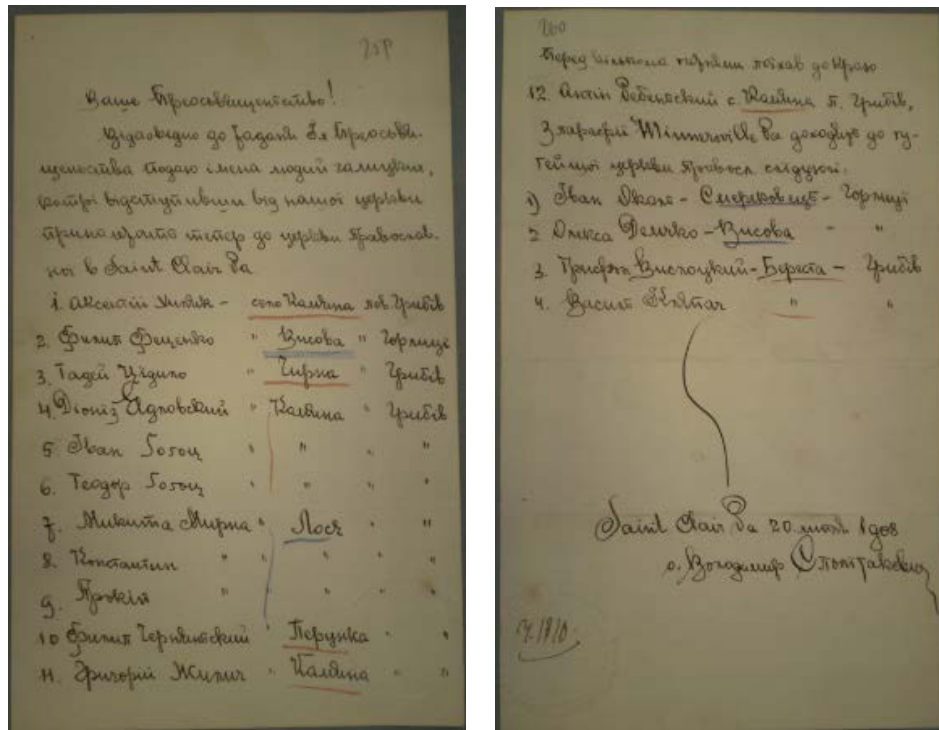 259
Ваше Преосвященьство!
Відповідно до Вя Преосьвя-
щеньства подаю імена людий галицких,
котрі відступивши від нашої церкви
приналежать тепер до церкви Православ-
ної в Saint Clair Pa
1. Аксентій село Каляна пов. Грибів
2. Филип Феценко " Висова " Горлиці
3. Тадей " Чирна " Грибів
4. Діонїз " Каляна " Грибів
5 Іван " " " "
6. Теодор " " " "
7. Микита Мирна " Лося " "
8. Константин " " " " "
9. " " " " "
10 Филип Чернянский " Перунка " "
11. Григорій Жилич " Каляна " "
260
Перед кількома поїхав до Краю
12. Антін с. Каляна п. Грибів,
З парафії Minersville Pa доходять до ту-
тейшої церкви Правосл. слїдуючі:
1) Іван - Смерековець - Горлиці
2 Олекса - Висова - "
3. Трифон Вислоцкий - Береста - Грибів
4. Василь " "
Saint Clair Pa 20 1908
о. Володимир
Ч. 1810.